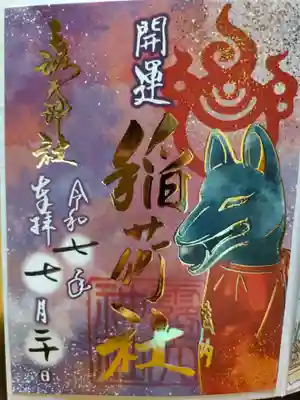 開運
境内
稲荷社
奉拝
令和七年
七月二十日